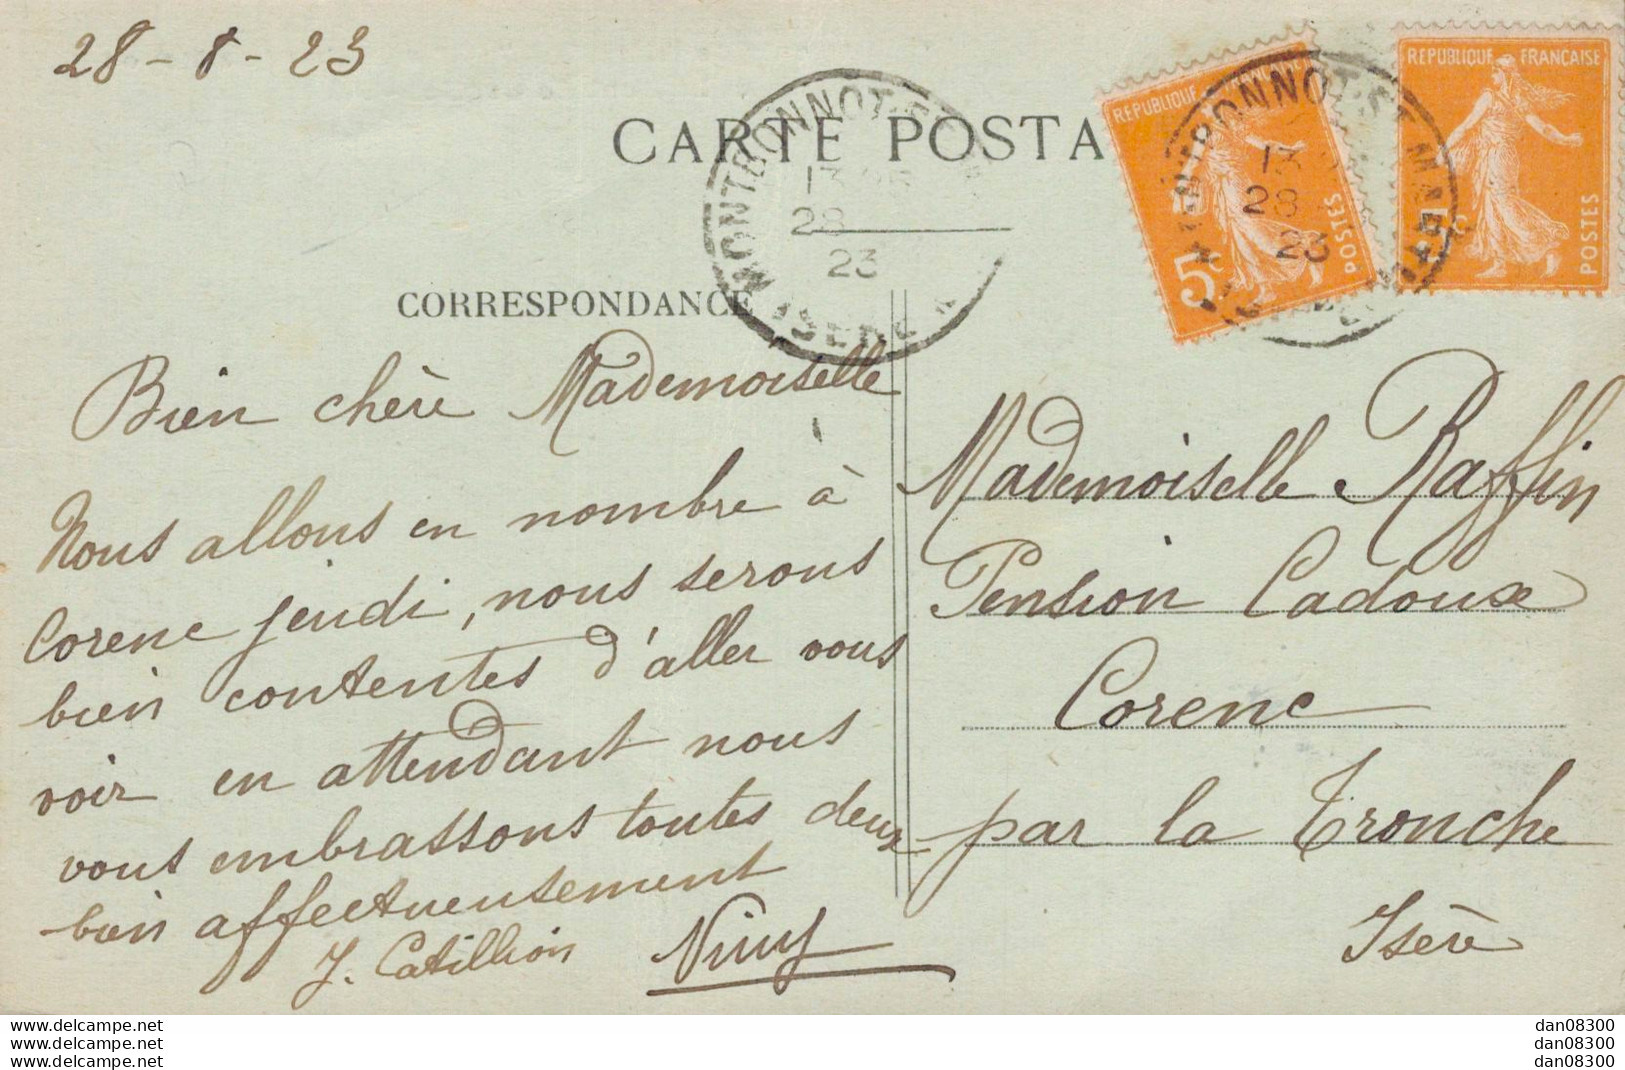 28-8-23
CARTE POSTA
REPUBLIQUE FRANÇAISE
5c
POSTES
REPUBLIQUE FRANÇAISE
POSTES
MONTBONNOT-ST M
13
28
23
ISERE
MONTBONNOT-ST MAR
13
28
23
CORRESPONDANCE
Bien chère Mademoiselle
Nous allons en nombre à
Corenc jeudi, nous serons
bien contentes d'aller vous
voir en attendant nous
vous embrassons toutes deux
bien affectueusement
J. Catillion
Mademoiselle Raffin
Pension Cadoux
Corenc
par la Tronche
Isère
www.delcampe.net
www.delcampe.net
www.delcampe.net
dan08300
dan08300
dan08300